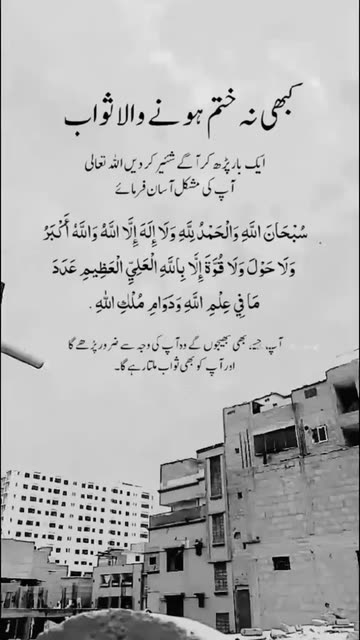 کبھی نہ ختم ہونے والا ثواب
ایک بار پڑھ کر آگے شئیر کر دیں اللہ تعالی
آپ کی مشکل آسان فرمائے
سُبْحَانَ اللَّهِ وَالْحَمْدُ لِلَّهِ وَلَا إِلَهَ إِلَّا اللَّهُ وَاللَّهُ أَكْبَرُ
وَلَا حَوْلَ وَلَا قُوَّةَ إِلَّا بِاللَّهِ الْعَلِيِّ الْعَظِيمِ عَدَدَ
مَا فِي عِلْمِ اللَّهِ وَدَوَامِ مُلْكِ اللَّهِ .
آپ، جسے، بھی بھیجوں گے وہ آپ کی وجہ سے ضرور پڑھے گا
اور آپ کو بھی ثواب ملتا رہے گا۔